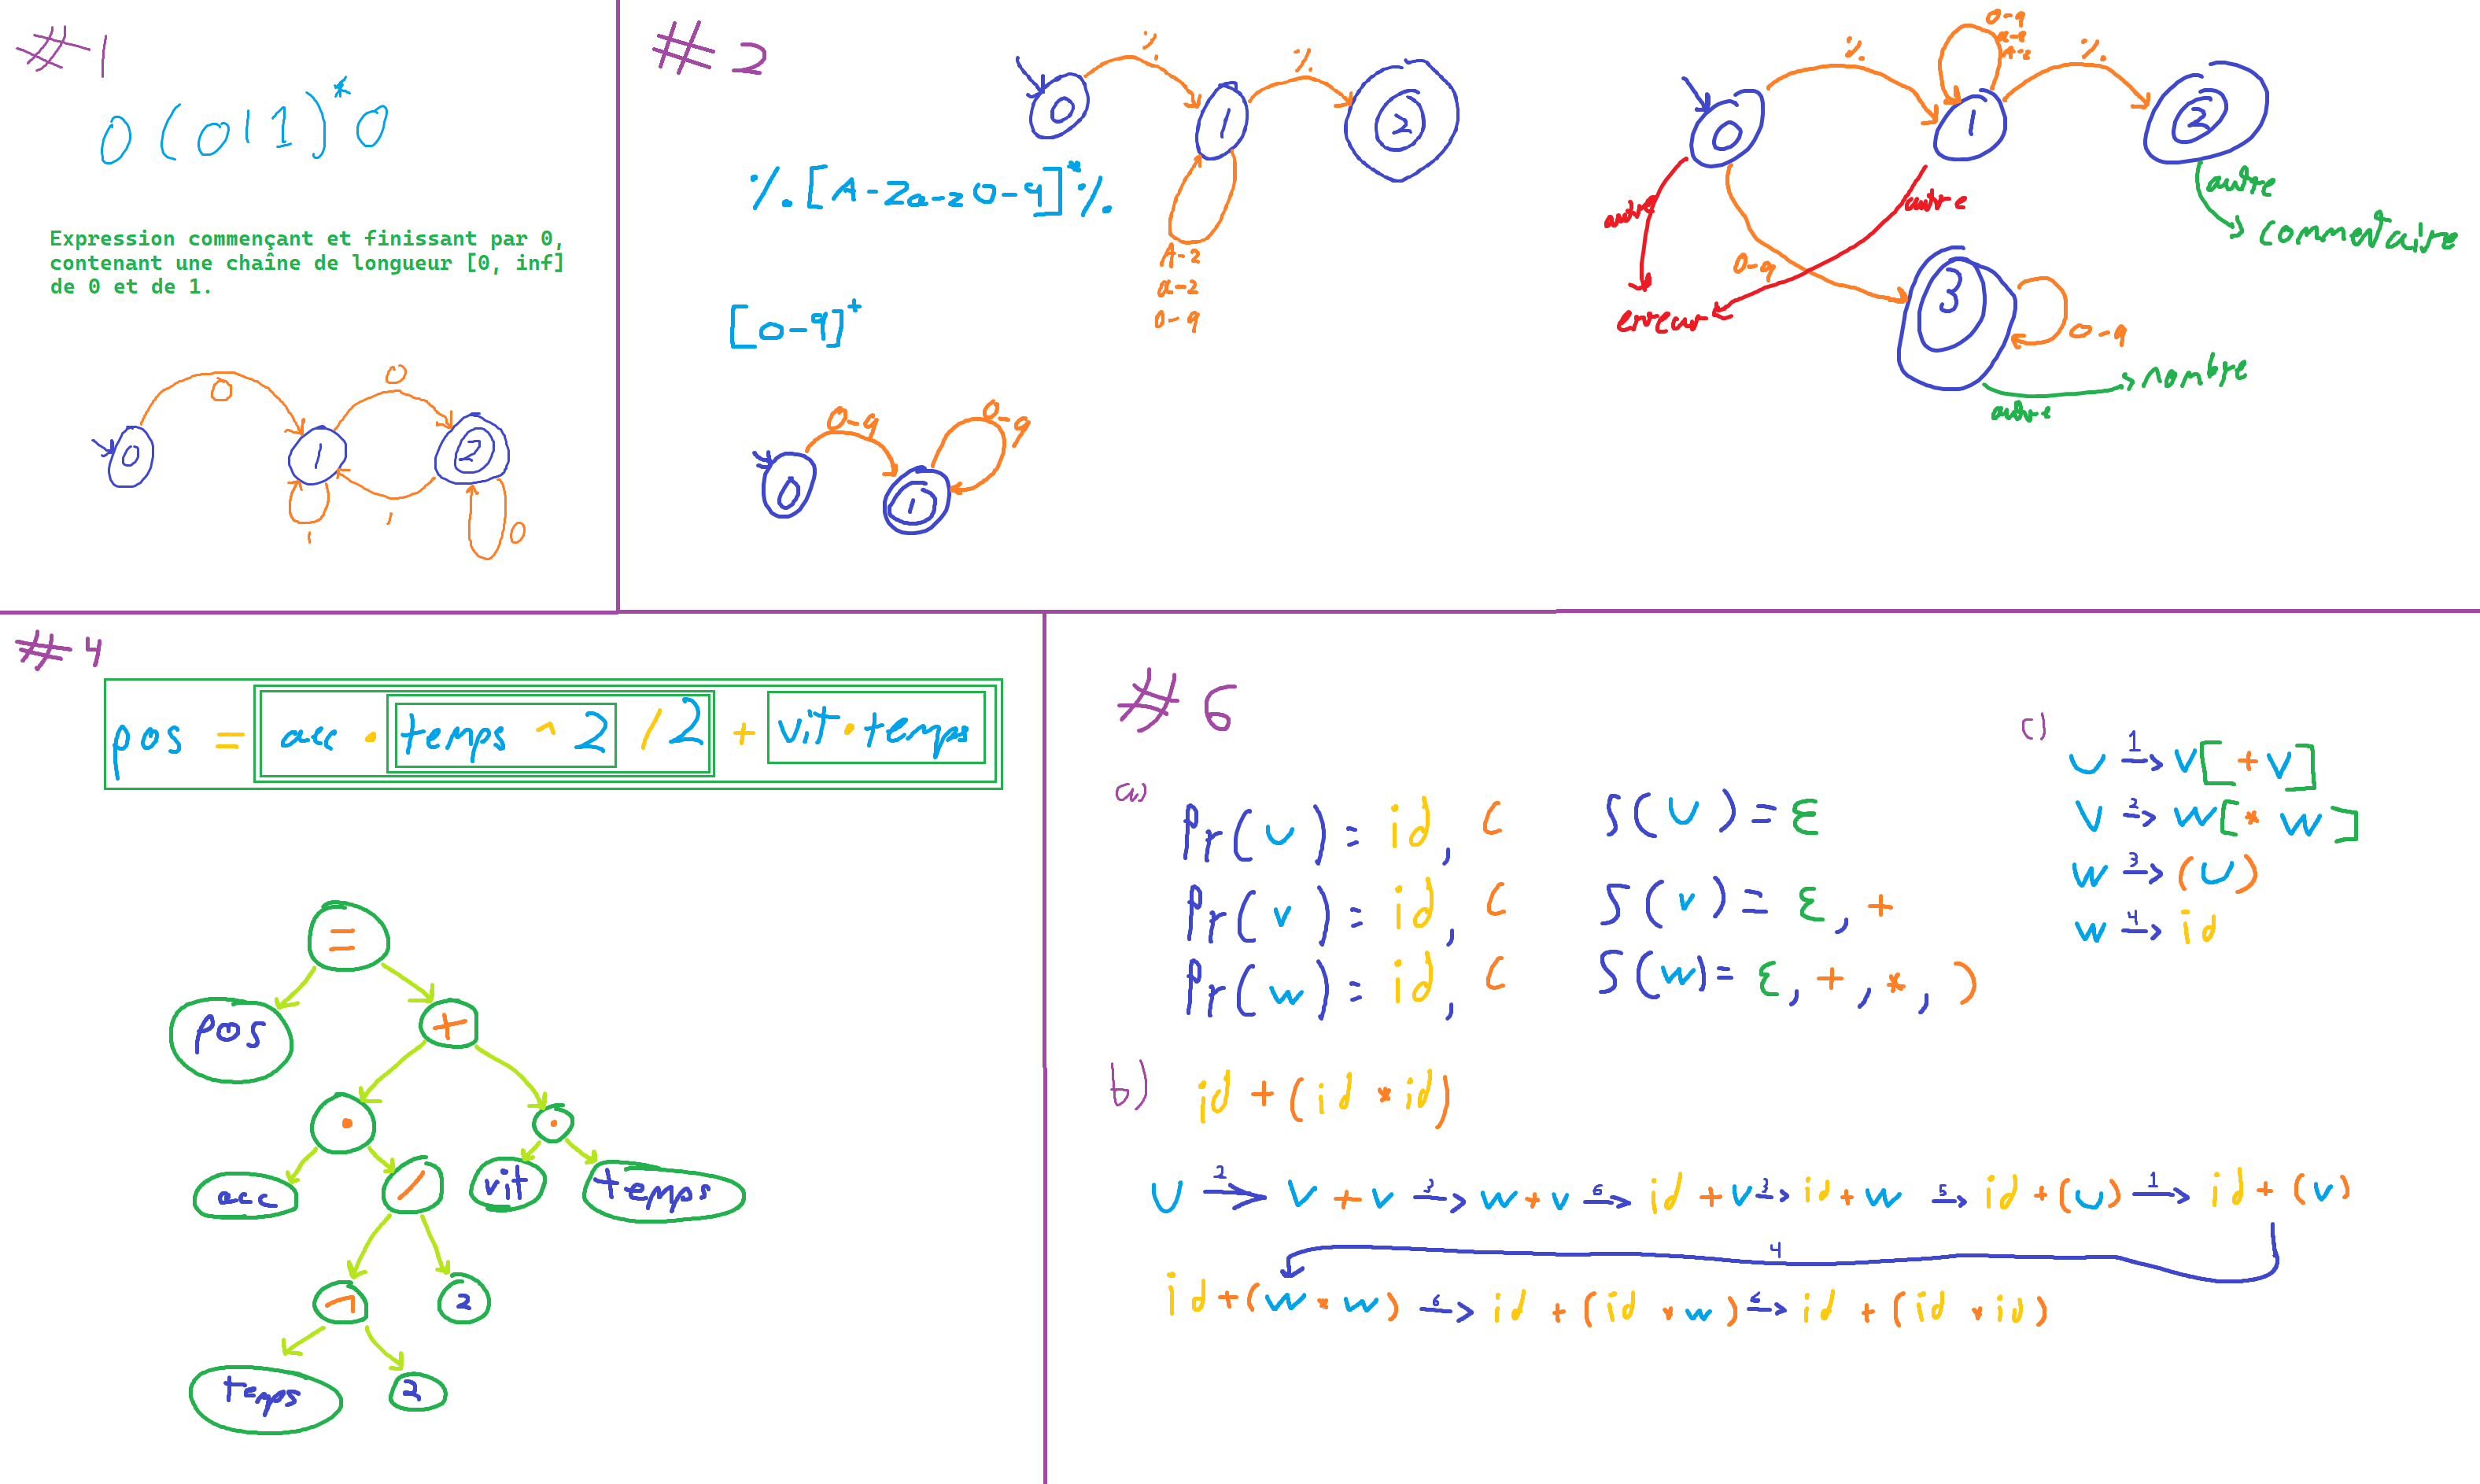 #1
0(0|1)*0
Expression commençant et finissant par 0,
contenant une chaîne de longueur [0, inf]
de 0 et de 1.
0
0
0
1
2
1
1
0
#2
%
%
0
1
2
%[A-Za-z0-9]*%
A-Z
a-z
0-9
[0-9]+
0-9
0-9
0
1
0-9
a-z
A-Z
%
%
0
1
2
autre
autre
autre
commentaire
0-9
erreur
3
0-9
nombre
autre
#4
pos = acc · temps ^ 2 / 2 + vit · temps
=
pos
+
·
·
acc
/
vit
temps
^
2
temps
2
#6
a)
Pr(U) = id, (
S(U) = ε
Pr(V) = id, (
S(V) = ε, +
Pr(W) = id, (
S(W) = ε, +, *, )
b)
id + (id * id)
U 2→ V + V 3→ W + V 6→ id + V 3→ id + W 5→ id + (U) 1→ id + (V)
4
id + (W * W) 6→ id + (id * W) 6→ id + (id * id)
c)
U 1→ V[+ V]
V 2→ W[* W]
W 3→ (U)
W 4→ id